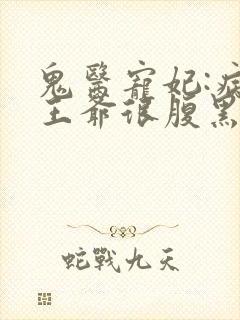 鬼醫寵妃:病
王爺很腹黑
蛇戰九天